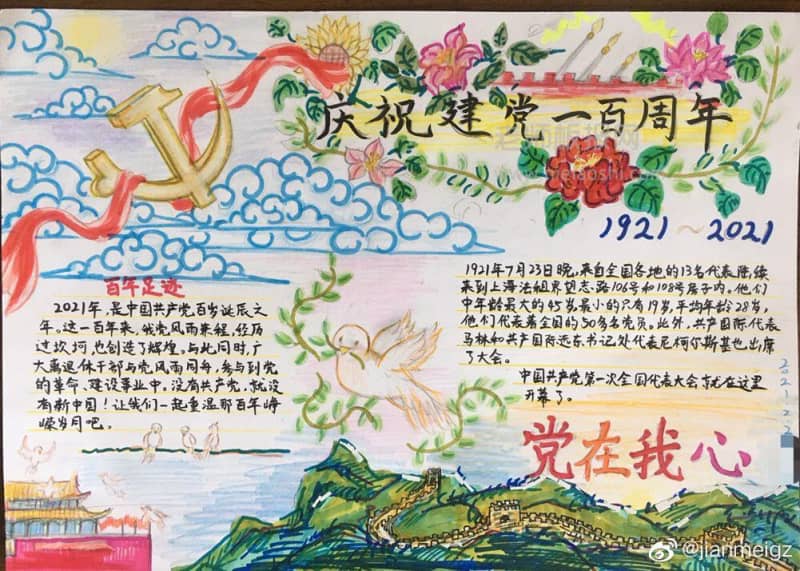 庆祝建党一百周年
1921~2021
百年足迹
2021年，是中国共产党百岁诞辰之
年。这一百年来，我党风雨兼程，经历
过坎坷，也创造了辉煌。与此同时，广
大离退休干部与党风雨同舟，参与到党
的革命、建设事业中，没有共产党，就没
有新中国！让我们一起重温那百年峥
嵘岁月吧。
1921年7月23日晚，来自全国各地的13名代表陆续
来到上海法租界望志路106号和108号房子内。他们
中年龄最大的45岁，最小的只有19岁，平均年龄28岁，
他们代表着全国的50多名党员。此外，共产国际代表
马林和共产国际远东书记处代表尼柯尔斯基也出席
了大会。
中国共产党第一次全国代表大会就在这里
开幕了。
党在我心
@jianmeigz